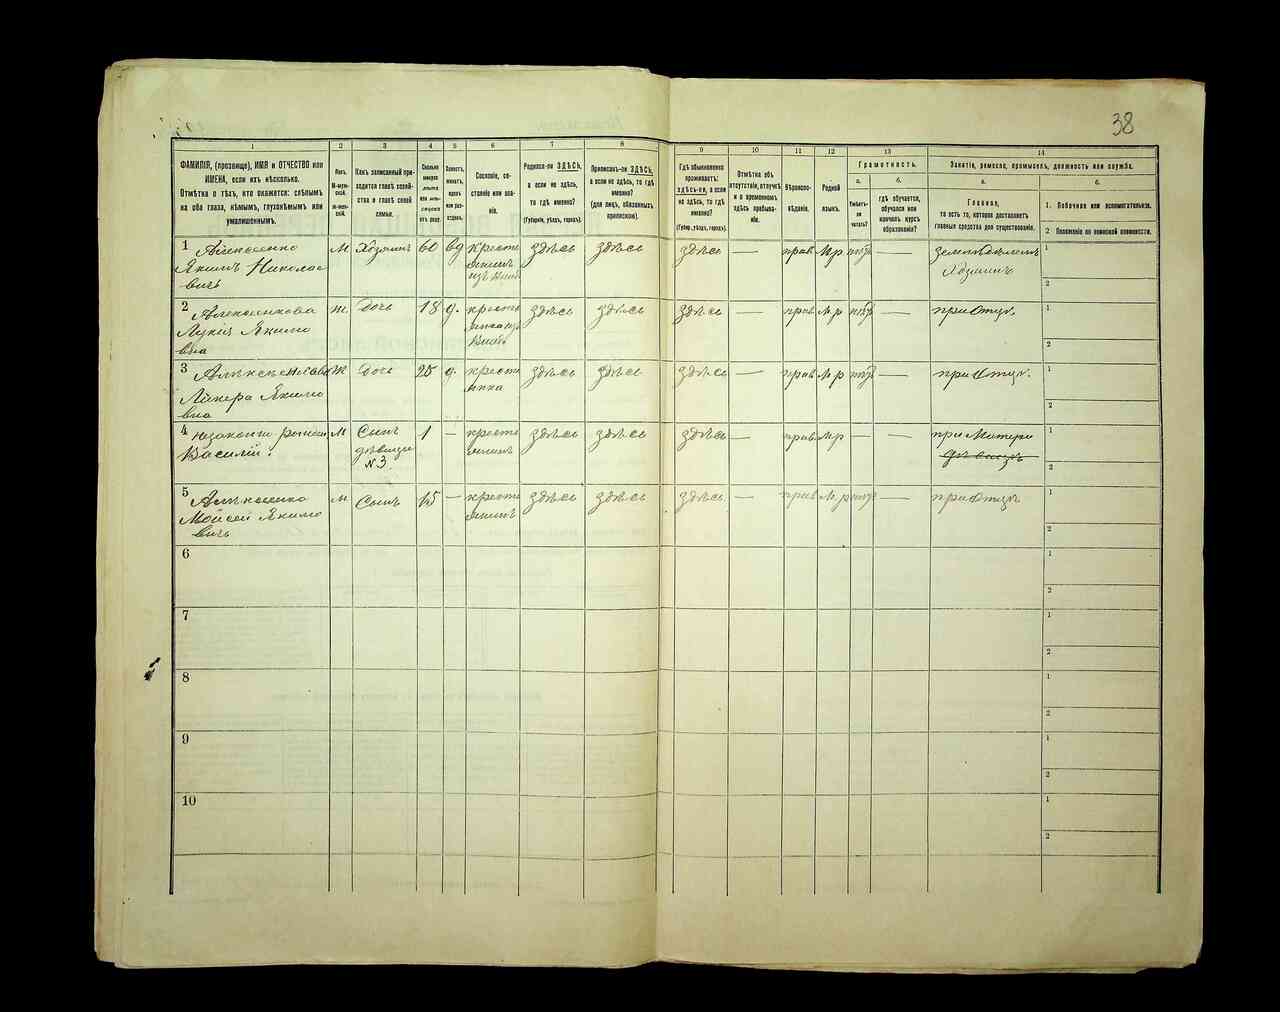 38
1 2 3 4 5 6 7 8 9 10 11 12 13 14
ФАМИЛІЯ, (прозвище), ИМЯ и ОТЧЕСТВО или
ИМЕНА, если ихъ нѣсколько.
Отмѣтка о тѣхъ, кто окажется: слѣпымъ
на оба глаза, нѣмымъ, глухонѣмымъ или
умалишеннымъ.
Полъ.
М-муж-
ской.
Ж-жен-
ской.
Какъ записанный при-
ходится главѣ хозяй-
ства и главѣ своей
семьи.
Сколько
минуло
лѣтъ
или мѣс-
яцевъ
отъ роду.
Холостъ,
женатъ,
вдовъ
или раз-
веденъ.
Сословіе, со-
стояніе или зва-
ніе.
Родился-ли ЗДѢСЬ,
а если не здѣсь,
то гдѣ именно?
(Губернія, уѣздъ, городъ).
Приписанъ-ли ЗДѢСЬ,
а если не здѣсь, то гдѣ
именно?
(для лицъ, обязанныхъ
припискою).
Гдѣ обыкновенно
проживаетъ:
здѣсь-ли, а если
не здѣсь, то гдѣ
именно?
(Губер., уѣздъ, городъ).
Отмѣтка объ
отсутствіи, отлучкѣ
и о временномъ
здѣсь пребыва-
ніи.
Вѣроиспо-
вѣданіе.
Родной
языкъ.
Грамотность.
а. б.
Умѣетъ-
ли
читать?
гдѣ обучается,
обучался или
кончилъ курсъ
образованія?
Занятіе, ремесло, промыселъ, должность или служба.
а. б.
Главное,
то есть то, которое доставляетъ
главныя средства для существованія.
1. Побочное или вспомогательное.
2 Положеніе по воинской повинности.
1 Алексѣенко М Хозяинъ 60 вд кресть здѣсь здѣсь здѣсь — прав Мр — 1
Якимъ Николае янинъ Хозяинъ
вичъ 2
2 Ж Дочь 18 д. кресть здѣсь здѣсь здѣсь — прав Мр — при Отцѣ. 1
Якимо
вна 2
3 Ж Дочь 25 д. кресть здѣсь здѣсь здѣсь — прав Мр — при Отцѣ. 1
Якимо янка
вна 2
4 М Сынъ 1 — кресть здѣсь здѣсь здѣсь — прав Мр — — при Матери 1
Василій. дѣвицы янинъ
№3. 2
5 М Сынъ 15 — кресть здѣсь здѣсь здѣсь — прав Мр — при Отцѣ 1
Мойсей Якимо янинъ
вичъ 2
6 1
2
7 1
2
8 1
2
9 1
2
10 1
2